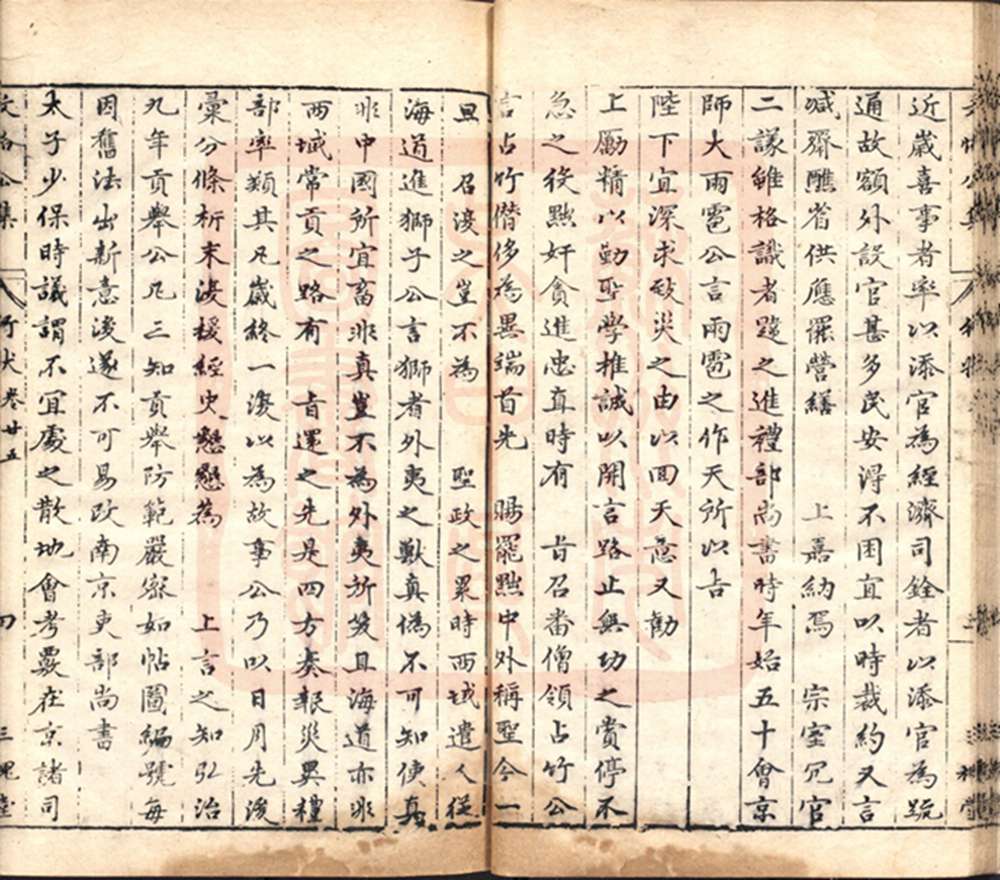 近歲喜事者率以添官為經濟司銓者以添官為疏
通故額外設官甚多民安得不困宜以時裁約又言
減齋醮省供應罷營繕 上嘉納焉 宗室冗官
二議雖格識者韙之進禮部尚書時年始五十會京
師大雨雹公言雨雹之作天所以告
陛下宜深求致災之由以回天意又勸
上勵精以勤聖學推誠以開言路止無功之賞停不
急之役黜奸貪進忠直時有 旨召番僧領占竹公
言占竹僣侈為異端首先 賜罷黜中外稱聖今一
旦 召復之豈不為 聖政之累時西域遣人從
海道進獅子公言獅者外夷之獸真偽不可知使真
非中國所宜畜非真豈不為外夷所笑且海道亦非
西域常貢之路有 旨還之先是四方奏報災異禮
部率類其凡歲終一復以為故事公乃以日月先後
彙分條析末復援經史懇懇為 上言之知弘治
九年貢舉公凡三知貢舉防範嚴密如帖圖編號每
因舊法出新意後遂不可易改南京吏部尚書
太子少保時議謂不宜處之散地會考覈在京諸司
文 公集 行狀卷廿五 四